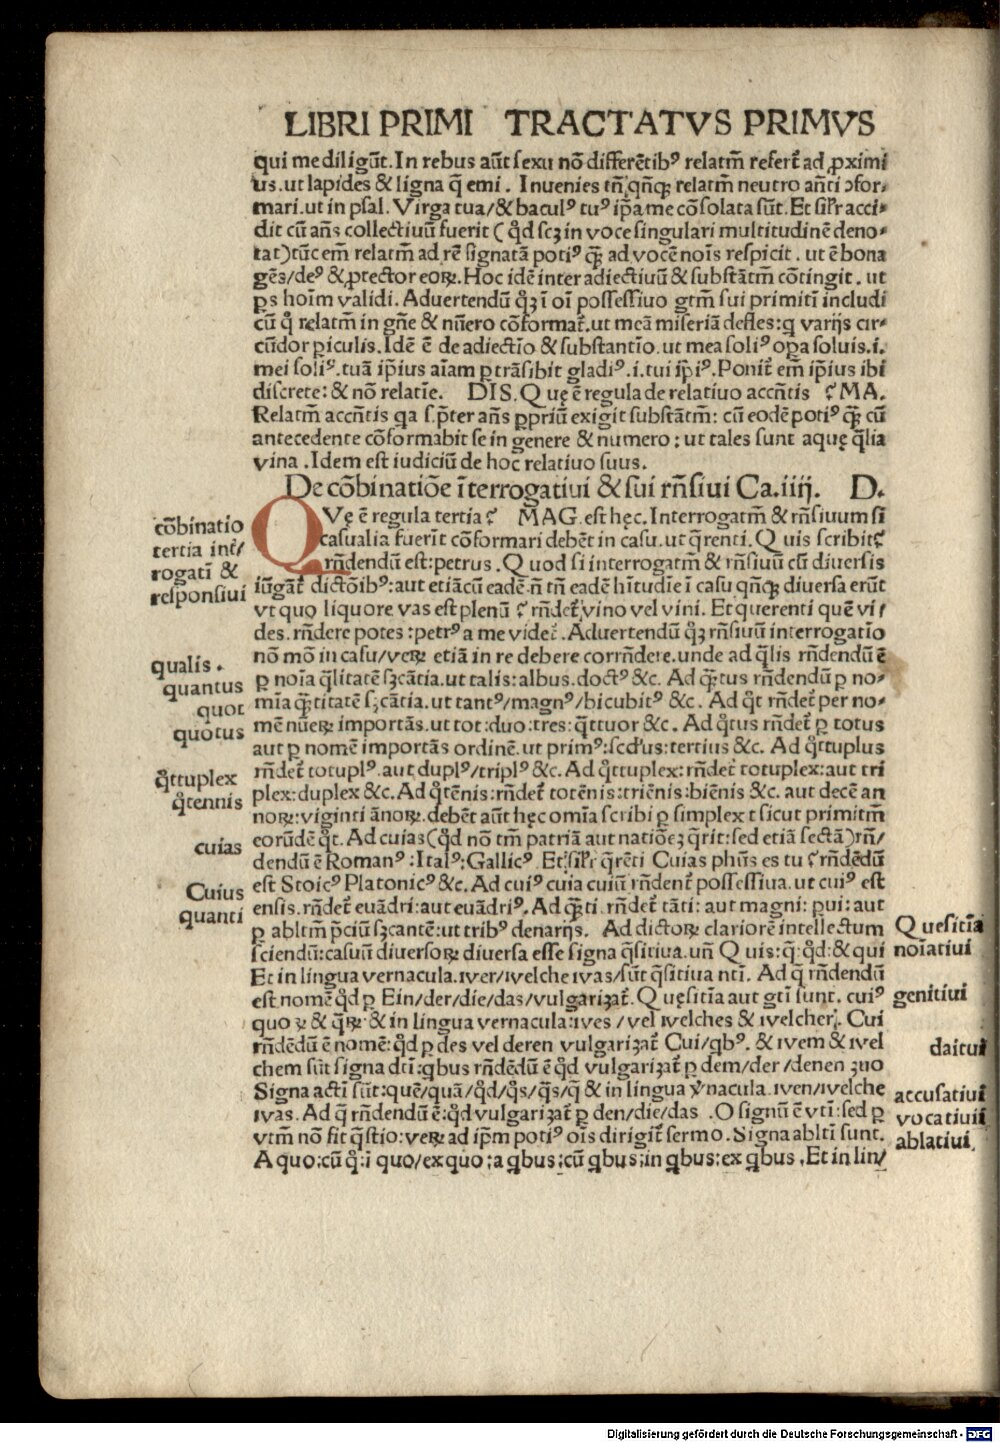 LIBRI PRIMI TRACTATVS PRIMVS
qui me diligūt. In rebus aūt sexu nō differētibꝰ relatm̄ refert̄ ad ꝓximi
us. ut lapides & ligna q̄ emi. Inuenies tn̄ qn̄qꝫ relatm̄ neutro an̄ti ↄfor⸗
mari. ut in psal. Virga tua/ & baculꝰ tuꝰ ip̄a me cōsolata sūt. Et sil̄r acci⸗
dit cū an̄s collectiuū fuerit ( qd̄ scꝫ in voce singulari multitudinē deno⸗
tat) tūc em̄ relatm̄ ad rē signatā potiꝰ qꝫ̄ ad vocē nois̄ respicit. ut ē bona
gēs/ deꝰ & ꝓtector eoꝝ. Hoc idē inter adiectiuū & substātm̄ cōtingit. ut
ꝑs hoīm validi. Aduertendū qꝫ̄ ī oī possessiuo gtm̄ sui primitī includi
cū q̊ relatm̄ in gn̄e & nūero cōformat̄. ut meā miseriā defles: q varijs cir⸗
cūdor ꝑiculis. Idē ē de adiectīo & substantīo. ut mea soliꝰ oꝑa soluis. i.
mei soliꝰ. tuā ip̄ius aīam ꝑtrāsibit gladiꝰ. i. tui ip̄iꝰ. Ponit̄ em̄ ip̄ius ibi
discrete: & nō relatīe. DIS. Quę ē regula de relatiuo accn̄tis ? MA.
Relatm̄ accn̄tis qa s. p̄ter an̄s ꝓpriū exigit substātm̄: cū eodē potiꝰ qꝫ̄ cū
antecedente cōformabit se in genere & numero: ut tales sunt aquę q̄lia
vina. Idem est iudiciū de hoc relatiuo suus.
De cōbinatiōe īterrogatiui & sui rn̄siui Ca. iiij. D.
QVę ē regula tertia? MAG. est hęc. Interrogatm̄ & rn̄siuum si
casualia fuerīt cōformari debēt in casu. ut q̄renti. Quis scribit?
rn̄dendū est: petrus. Quod si interrogatm̄ & rn̄siuū cū diuersis
iūgāt̄ dictōibꝰ: aut etiā cū eadē. n̄ tn̄ eadē hītudīe ī casu qn̄qꝫ diuersa erūt
vt quo liquore vas est plenū ? rn̄det̄ vino vel vini. Et querenti quē vi/
des. rn̄dere potes: petrꝰ a me videt̄. Aduertendū qꝫ̄ rn̄siuū interrogatīo
nō mō in casu/ veꝝ etiā in re debere corrn̄dere. unde ad q̄lis rn̄dendū ē
ꝑ noīa q̄litatē sꝫcātia. ut talis: albus. doctꝰ &c. Ad qꝫ̄tus rn̄dendū ꝑ no⸗
mīa qꝫ̄titatē sꝫcātia. ut tantꝰ/ magnꝰ/ bicubitꝰ &c. Ad q̊t rn̄det̄ per no⸗
mē nūeꝝ importās. ut tot: duo: tres: q̄ttuor &c. Ad q̊tus rn̄det̄ ꝑ totus
aut ꝑ nomē importās ordinē. ut primꝰ: scd̄us: tertius &c. Ad q̊ttuplus
rn̄det̄ totuplꝰ. aut duplꝰ/ triplꝰ &c. Ad q̊ttuplex: rn̄det̄ totuplex: aut tri
plex: duplex &c. Ad q̊tēnis: rn̄det̄ totēnis: triēnis: biēnis &c. aut decē an
noꝝ: viginti ānoꝝ. debēt aūt hęc omīa scribi ꝑ simplex t sicut primitm̄
eorūdē q̊t. Ad cuias ( qd̄ nō tm̄ patriā aut natiōeꝫ q̄rit: sed etiā sectā) rn̄/
dendū ē Romanꝰ: Italꝰ: Gallicꝰ. Et sil̄r q̄rēti Cuias ph̄us es tu ? rn̄dēdū
est Stoicꝰ Platonicꝰ &c. Ad cuiꝰ cuia cuiū rn̄dent̄ possessiua. ut cuiꝰ est
ensis. rn̄det̄ euādri: aut euādriꝰ. Ad qꝫ̄ti. rn̄det̄ tāti: aut magni: ꝑui: aut
ꝑ abltm̄ p̄ciū sꝫcantē: ut tribꝰ denarijs. Ad dictoꝝ clariorē intellectum
sciendū: casuū diuersoꝝ diuersa esse signa q̄sitiua. un̄ Quis: q̄: qd̄: & qui
Et in lingua vernacula. wer/ welche was/ sūt q̄sitiua nt̄i. Ad q̄ rn̄dendū
est nomē qd̄ ꝑ Ein/ der/ die/ das/ vulgariꝫat̄. Quęsitīa aut gt̄i sunt. cuiꝰ
quoꝝ & q̄ꝝ & in lingua vernacula: wes / vel welches & welcher. Cui
rn̄dēdū ē nomē: qd̄ ꝑ des vel deren vulgariꝫat̄ Cui/ qbꝰ. & wem & wel
chem sūt signa dt̄i: qbus rn̄dēdū ē qd̄ vulgariꝫat̄ ꝑ dem/ der/ denen ꝫuo
Signa act̄i sūt: quē/ quā/ qd̄/ q̊s/ q̄s/ q̄ & in lingua v̄nacula. wen/ welche
was. Ad q̄ rn̄dendū ē: qd̄ vulgariꝫat̄ ꝑ den/ die/ das. O signū ē vt̄i: sed ꝑ
vtm̄ nō fit q̄stio: veꝝ ad ip̄m potiꝰ oīs dirigit̄ sermo. Signa ablt̄i sunt.
A quo: cū q̊: ī quo/ ex quo: a qbus: cū qbus: in qbus: ex qbus. Et in lin/
cōbinatio
tertia int̄/
rogatī &
responsiui
qualis.
quantus
quot
quotus
q̊ttuplex
q̊tennis
cuias
Cuius
quanti
Quesitīa
noīatiui
genitiui
datiui
accusatiui
vocatiui
ablatiui
Digitalisierung gefördert durch die Deutsche Forschungsgemeinschaft - DFG